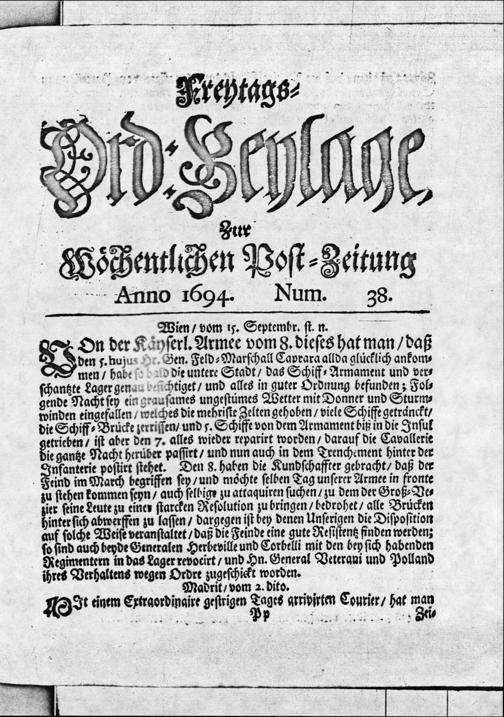 Freytags-
Ord: Beylage,
Zur
Wöchentlichen Post-Zeitung
Anno 1694. Num. 38.
Wien / vom 15. Septembr. st. n.
VOn der Käyserl. Armee vom 8. dieses hat man / daß
den 5. hujus Hr. Gen. Feld-Marschall Caprara allda glücklich ankom-
men / habe so bald die untere Stadt / das Schiff-Armament und ver-
schantzte Lager genau besichtiget / und alles in guter Ordnung befunden; Fol-
gende Nacht sey ein grausames ungestümes Wetter mit Donner und Sturm-
winden eingefallen / welches die mehriste Zelten gehoben / viele Schiffe getränckt /
die Schiff-Brücke zerrissen / und 5. Schiffe von dem Armament biß in die Insul
getrieben / ist aber den 7. alles wieder reparirt worden / darauf die Cavallerie
die gantze Nacht herüber passirt / und nun auch in dem Trenchement hinter der
Infanterie postirt stehet. Den 8. haben die Kundschaffter gebracht / daß der
Feind im March begriffen sey / und möchte selben Tag unserer Armee in fronte
zu stehen kommen seyn / auch selbige zu attaquiren suchen / zu dem der Groß-Ve-
zier seine Leute zu einer starcken Resolution zu bringen / bedrohet / alle Brücken
hinter sich abwerffen zu lassen / dargegen ist bey denen Unserigen die Disposition
auf solche Weise veranstaltet / daß die Feinde eine gute Resistentz finden werden;
so sind auch beyde Generalen Herbeville und Corbelli mit den bey sich habenden
Regimentern in das Lager revocirt / und Hn. General Veterani und Polland
ihres Verhaltens wegen Ordre zugeschickt worden.
Madrit / vom 2. dito.
MIt einem Extraordinaire gestrigen Tages arrivirten Courier / hat man
Pp Zei-